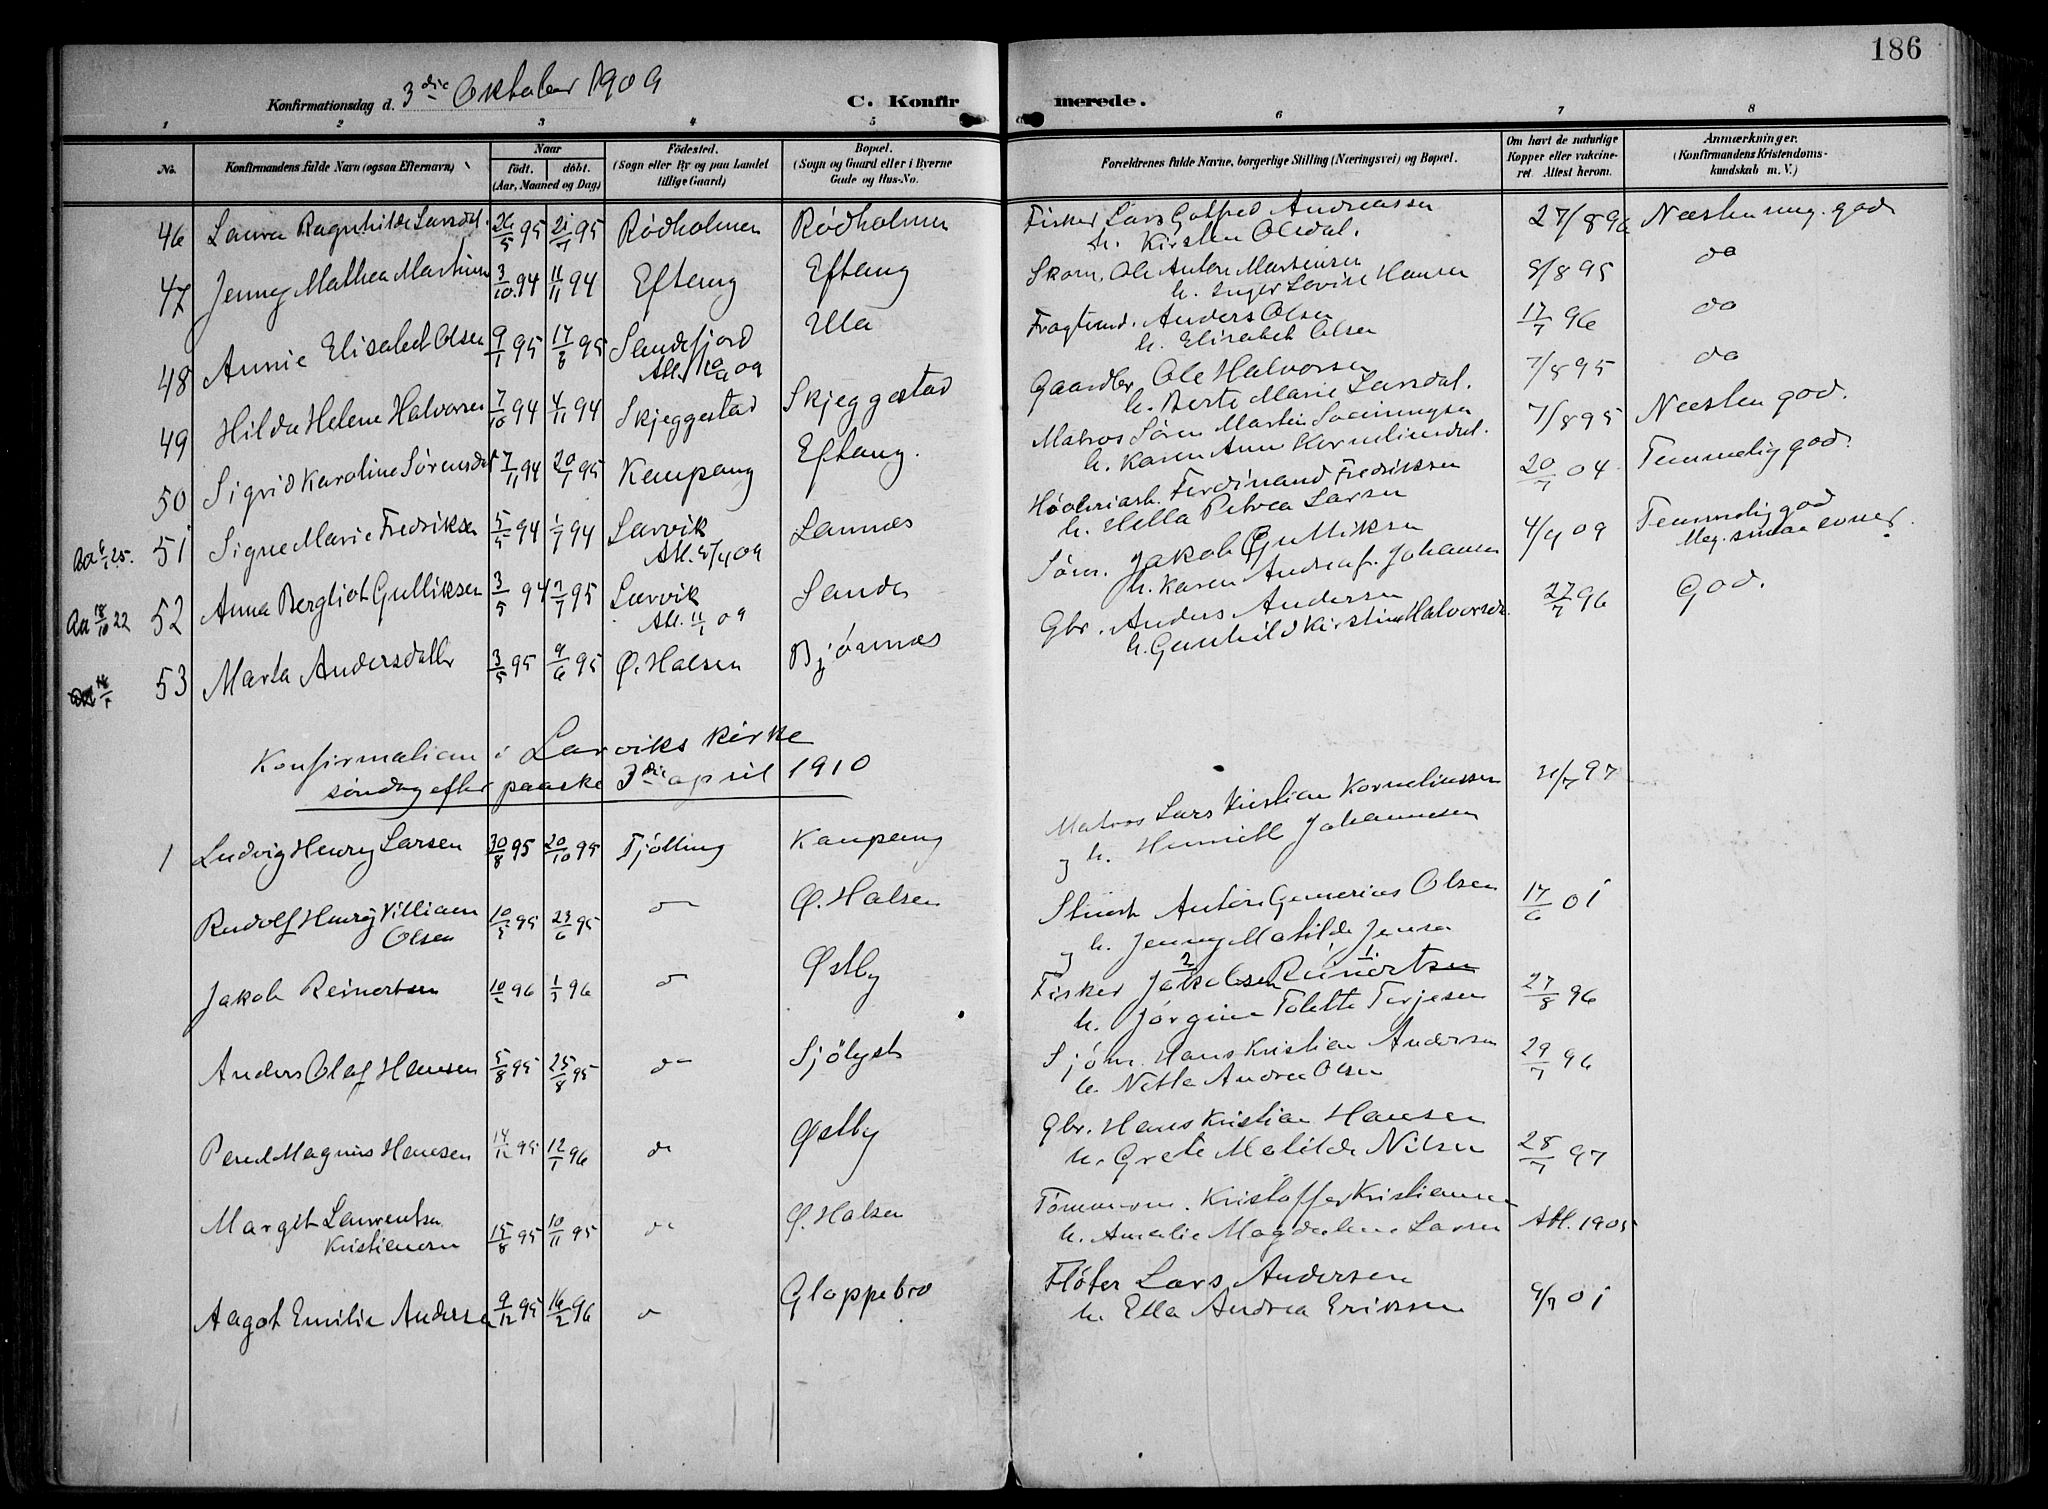 186
Konfirmationsdag d. 3die Oktober 1909 C. Konfirmerede.
1 2 3 4 5 6 7 8
No. Konfirmandens fulde Navn (ogsaa Efternavn) Naar født. døbt. (Aar, Maaned og Dag) Fødested. (Sogn eller By og paa Landet tillige Gaard) Bopæl. (Sogn og Gaard eller i Byerne Gade og Hus-No. Forældrenes fulde Navne, borgerlige Stilling (Næringsvei) og Bopæl. Om havt de naturlige Kopper eller vakcineret. Attest herom. Anmærkninger. (Konfirmandens Kristendomskundskab m. V.)
46 Laura Ragnhilde Larsdt. 26/5 95 21/7 95 Rødholmen Rødholmen Fisker Lars Gotfred Andreassen 27/8 96 Næsten mg. god
h. Kirsten Olsdat.
47 Jenny Mathea Martinsen 3/10 94 11/11 94 Eftang Eftang Skom. Ole Anton Martinsen 8/8 95 do
h. Inger Lovise Hansen
48 Annie Elisabet Olsen 9/1 95 17/3 95 Sandefjord Ula Fragtmd. Anders Olsen 17/7 96 do
Att. h. Elisabeth Olsen
49 Hilda Helene Halvorsen 7/10 94 4/11 94 Skjeggestad Skjeggestad Gaardbr. Ole Halvorsen 7/8 95 do
h. Berte Marie Larsdat.
50 Sigrid Karoline Sørensdat 7/11 94 20/1 95 Kaupang Eftang. Matros Søren Martin 7/8 95 Næsten god.
h. Karen Ann Korneliusdat.
51 Signe Marie Fredriksen 5/5 94 1/7 94 Larvik Lannes Ferdinand Fredriksen 20/7 04 Temmelig god.
h. Hella Petrea Larsen
52 Anna Bergliot Gulliksen 3/5 94 7/7 95 Larvik Sande Søm. Jakob Gulliksen 4/4 09 Temmelig god
Att. 11/1 09 h. Karen Andrea f. Johansen Meg. smaa evner.
53 Marta Andersdatter 3/5 95 9/6 95 Ø. Halsen Bjønnes Gbr. Anders Andersen 27/7 96 God.
h. Gunhild Kirstine Halvorsdt.
Konfirmation i Larviks kirke
søndag efter paaske 3die april 1910
1 Ludvig Henry Larsen 30/8 95 20/10 95 Tjølling Kaupang Matros Lars Kristian Korneliussen
og h. Henriette Johannesen
Rudolf Henry Villiam 10/5 95 23/6 95 do Ø. Halsen Stuert Anton Gunerius Olsen 17/6 01
Olsen og h. Jenny Matilde Jensen
Jakob Reinertsen 10/2 96 1/3 96 do Østby Fisker Jakobsen Reinertsen 27/8 96
h. Jørgine Tolette Terjesen
Anders Olaf Hansen 5/8 95 25/8 95 do Sjölyst Sjøm. Hans Kristian Andersen 29/7 96
h. Netla Andrea Olsen
Magnus Hansen 14/12 95 12/1 96 do Østby Gbr. Hans Kristian Hansen 28/7 97
h. Grete Matilde Nilsen
Margit Laurentse 15/8 95 10/11 95 do Ø. Halsen Tømmerm. Kristoffer Kristiansen Att. 1905
Kristiansen h. Amalie Magdalene Larsen
Aagot Emilie Andersen 9/12 95 16/2 96 do Gloppebro Fløter Lars Andersen 9/7 01
h. Ella Andrea Eriksen